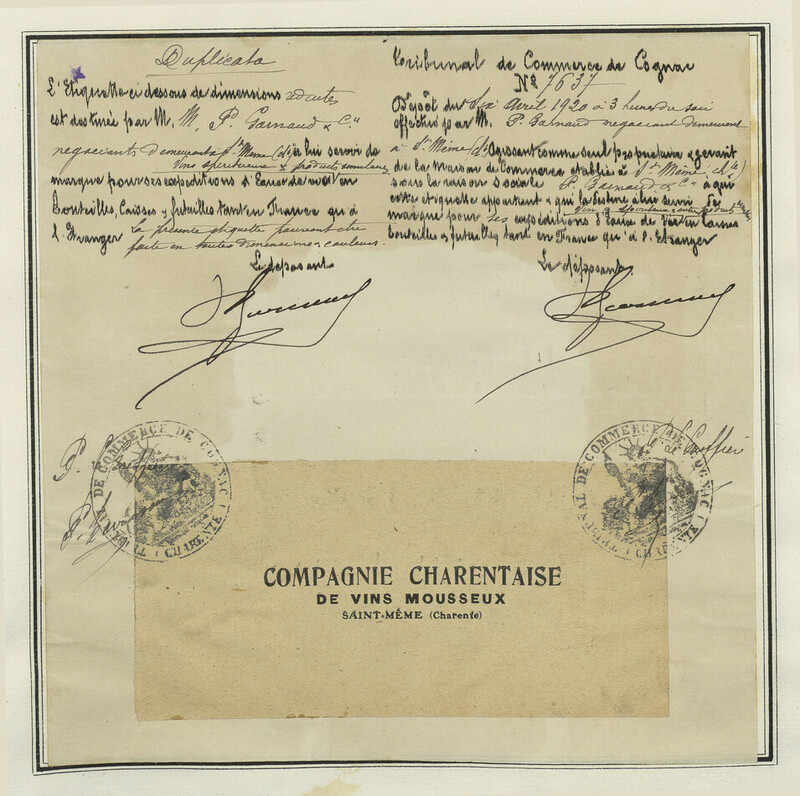 Duplicata
L'Etiquette ci dessous de dimensions réduites
est destinée par M. M. P. Garnaud & Cie
négociants demeurant à St Même (Cte) à lui servir de
Vins spiritueux & produits similaires
marque pour ses expéditions d'Eaux de vie en
Bouteilles, Caisses & futailles tant en France qu'à
l'Etranger la présente étiquette pourront être
faite en toutes dimensions & couleurs.
Le déposant
Tribunal de Commerce de Cognac
No 7637
Dépôt du Six Avril 1920 à 3 heures du soir
effectué par M. P. Garnaud négociant demeurant
à St Même (Cte) Agissant comme seul propriétaire & gérant
de la Maison de Commerce établie à St Même (Cte)
sous la raison sociale P. Garnaud & Cie à qui
cette étiquette appartient & qui la destine à lui servir de
Vins & spiritueux & autres produits
marque pour ses expéditions d'Eaux de Vie en Caisses
Bouteilles & futailles tant en France qu'à l'Etranger
Le déposant
TRIBUNAL DE COMMERCE DE COGNAC (CHARENTE)
TRIBUNAL DE COMMERCE DE COGNAC (CHARENTE)
COMPAGNIE CHARENTAISE
DE VINS MOUSSEUX
SAINT-MÊME (Charente)